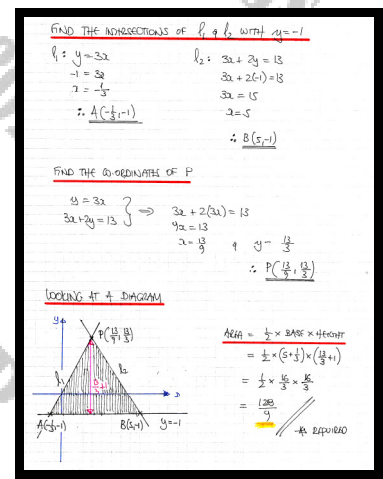 FIND THE INTERSECTIONS OF l₁ & l₂ WITH y=-1
l₁: y=3x
-1 = 3x
x = -1/3
∴ A(-1/3,-1)
l₂: 3x + 2y = 13
3x + 2(-1) = 13
3x = 15
x = 5
∴ B(5,-1)
FIND THE CO-ORDINATES OF P
y = 3x
3x+2y = 13 } ⇒ 3x + 2(3x) = 13
9x = 13
x = 13/9 & y = 13/3
∴ P(13/9, 13/3)
LOOKING AT A DIAGRAM
y
P(13/9, 13/3)
l₁
l₂
A(-1/3,-1)
B(5,-1)
y=-1
AREA = 1/2 × BASE × HEIGHT
= 1/2 × (5+1/3) × (13/3+1)
= 1/2 × 16/3 × 16/3
= 128/9
AS REQUIRED